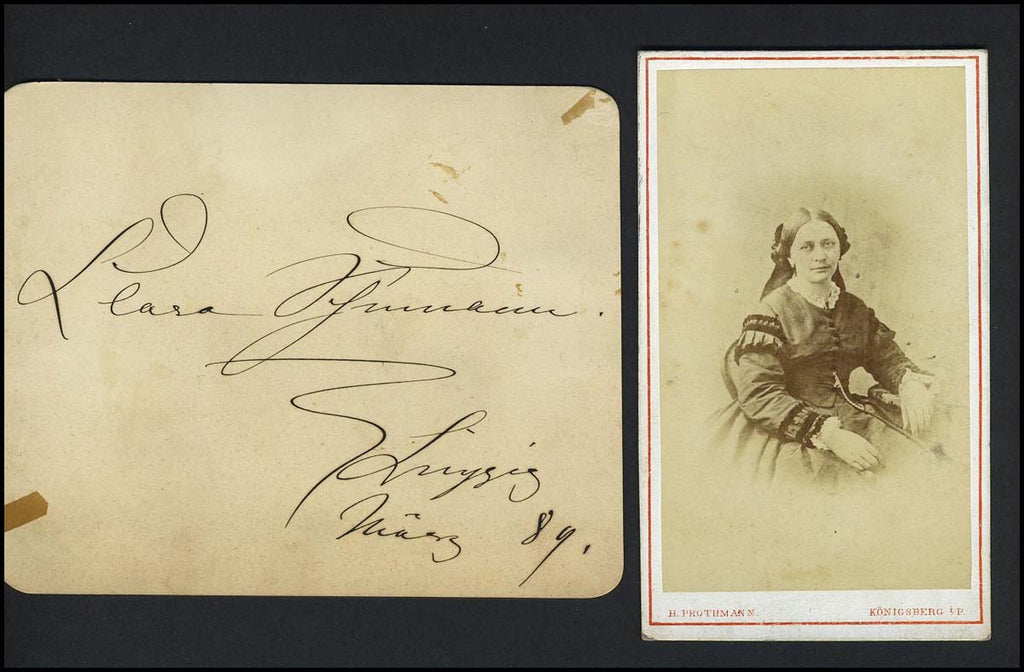 Clara Schumann.
Leipzig
März 89.
H. PROTHMANN. KÖNIGSBERG i/P.